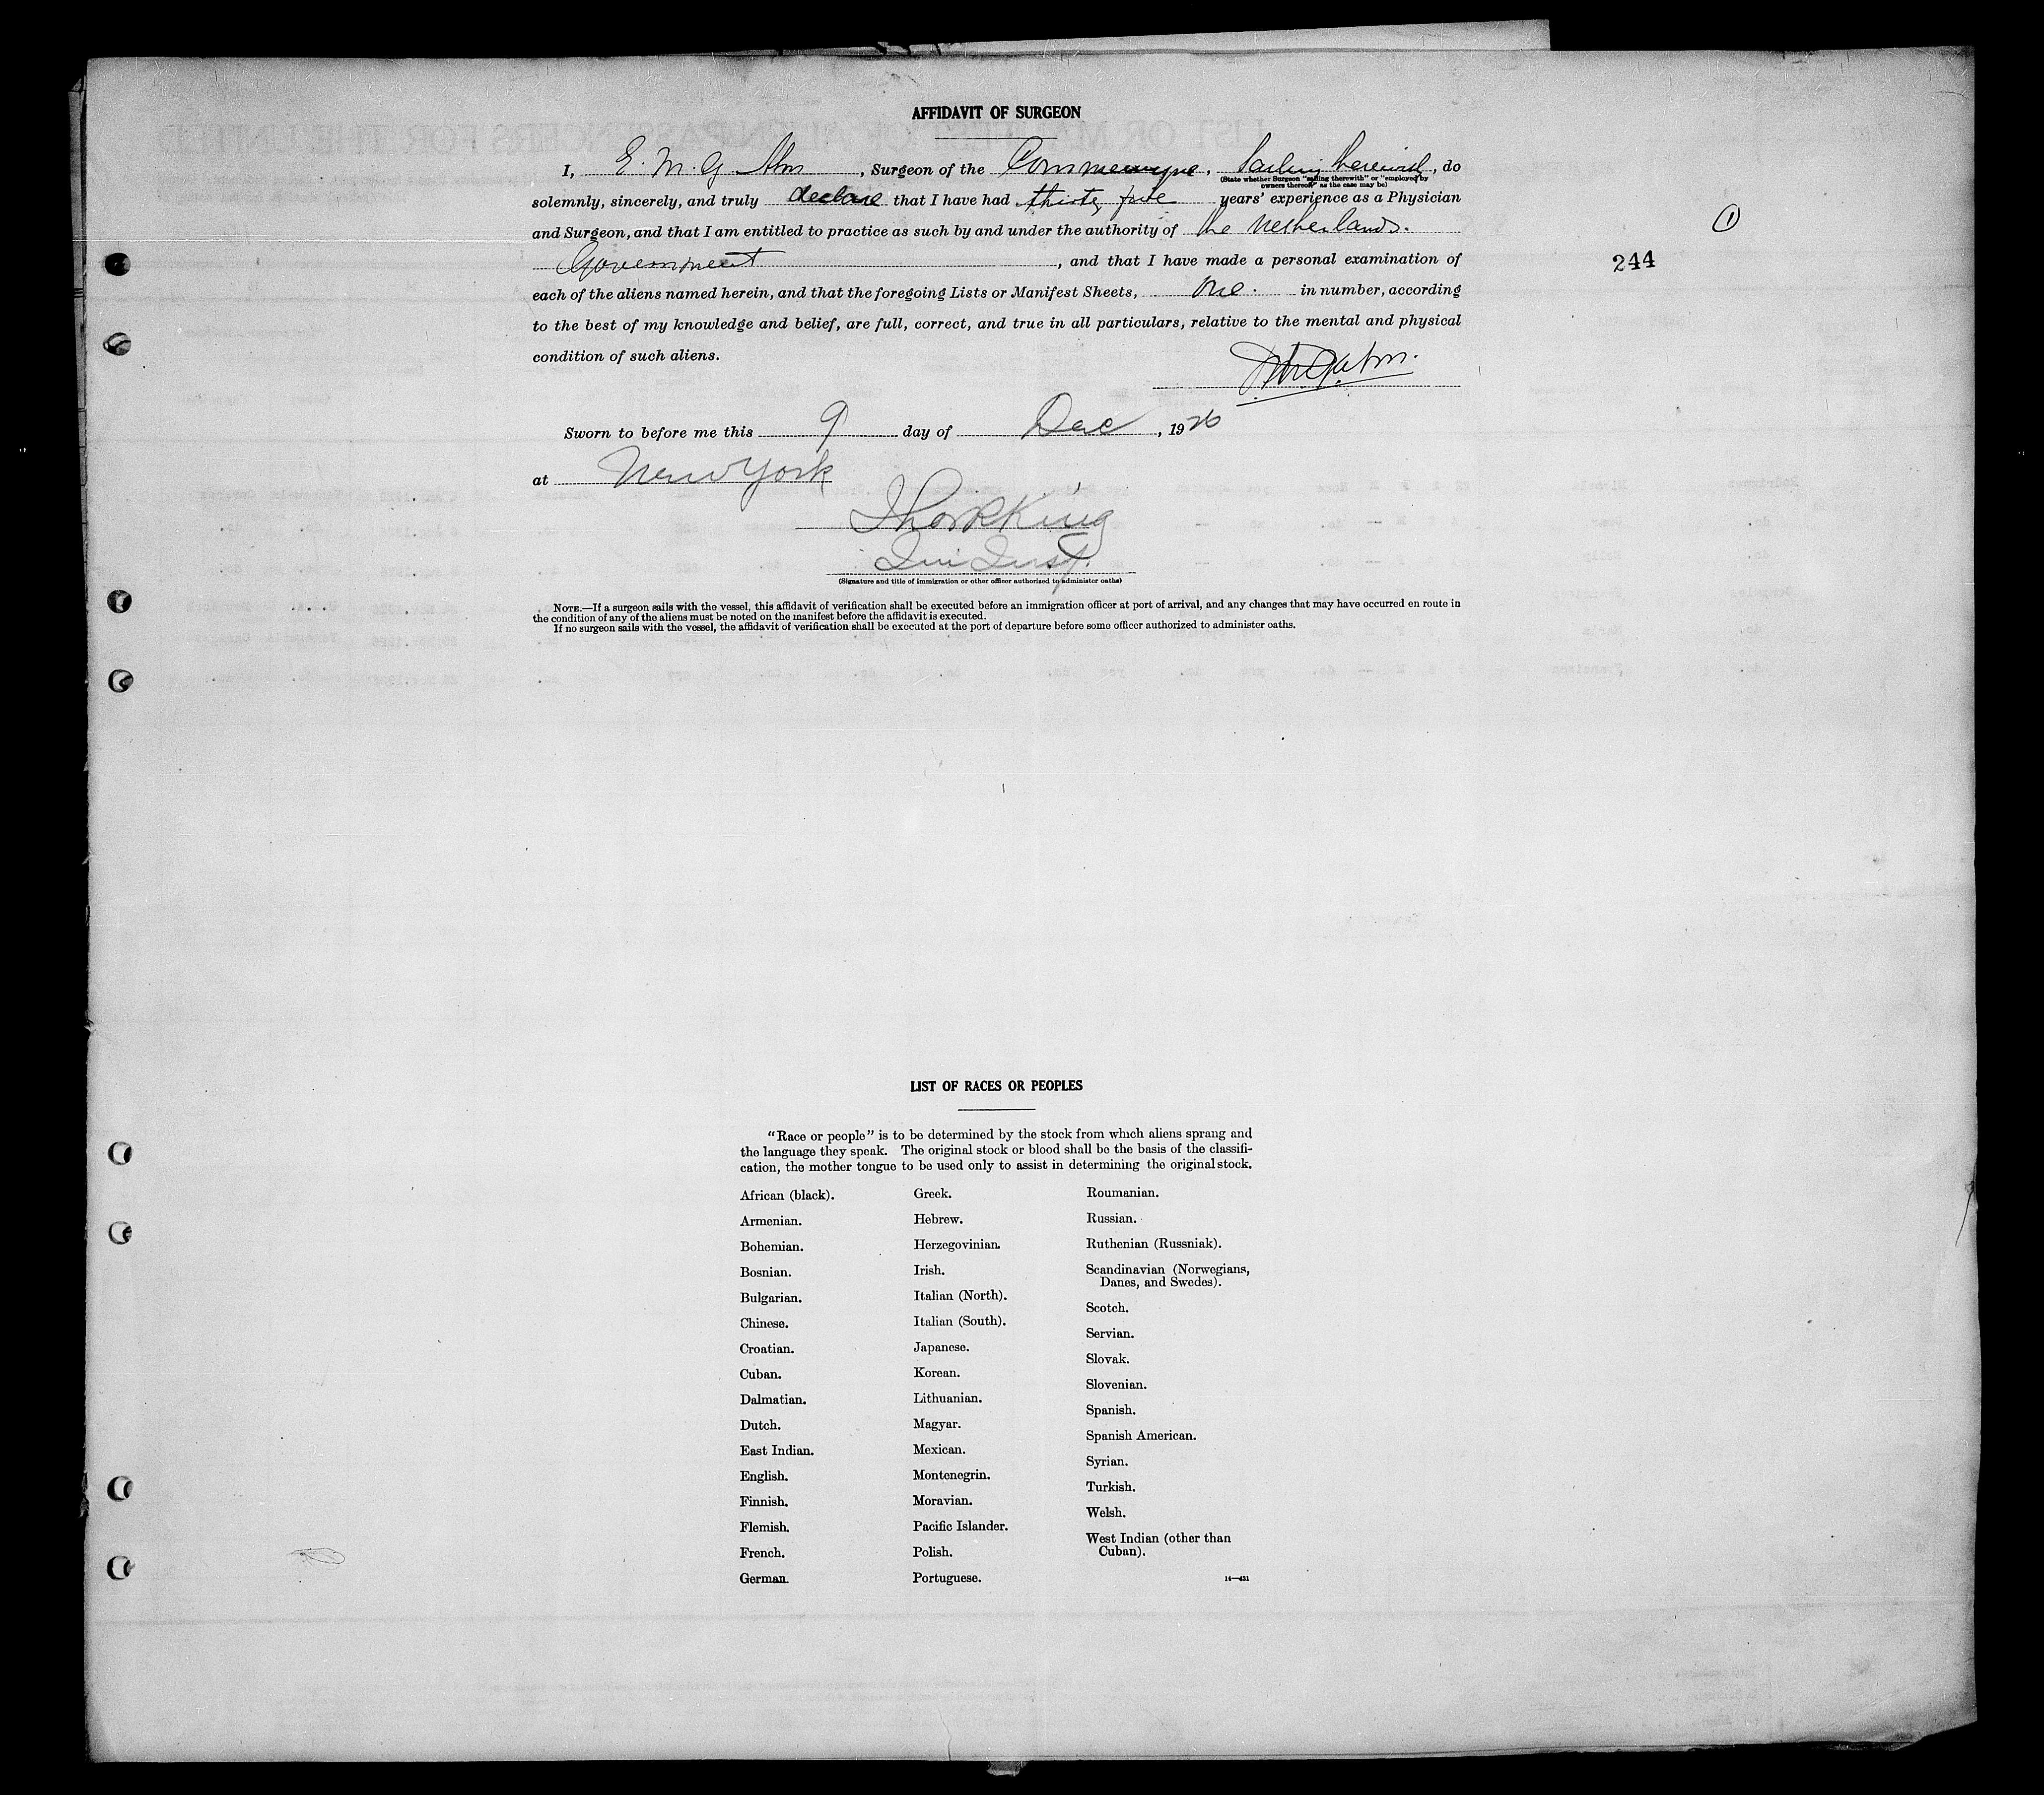 AFFIDAVIT OF SURGEON
I, E. M. G. Alm , Surgeon of the Commewyne , Sailing therewith , do
(State whether Surgeon "sailing therewith" or "employed by
owners thereof" as the case may be)
solemnly, sincerely, and truly declare that I have had thirty five years' experience as a Physician
and Surgeon, and that I am entitled to practice as such by and under the authority of the Netherlands.
Government , and that I have made a personal examination of
each of the aliens named herein, and that the foregoing Lists or Manifest Sheets, one. in number, according
to the best of my knowledge and belief, are full, correct, and true in all particulars, relative to the mental and physical
condition of such aliens.
1
244
Sworn to before me this 9 day of Dec , 1926
at New York
King
Imm Insp.
(Signature and title of immigration or other officer authorized to administer oaths)
NOTE.—If a surgeon sails with the vessel, this affidavit of verification shall be executed before an immigration officer at port of arrival, and any changes that may have occurred en route in
the condition of any of the aliens must be noted on the manifest before the affidavit is executed.
If no surgeon sails with the vessel, the affidavit of verification shall be executed at the port of departure before some officer authorized to administer oaths.
LIST OF RACES OR PEOPLES
"Race or people" is to be determined by the stock from which aliens sprang and
the language they speak. The original stock or blood shall be the basis of the classifi-
cation, the mother tongue to be used only to assist in determining the original stock.
African (black).
Armenian.
Bohemian.
Bosnian.
Bulgarian.
Chinese.
Croatian.
Cuban.
Dalmatian.
Dutch.
East Indian.
English.
Finnish.
Flemish.
French.
German.
Greek.
Hebrew.
Herzegovinian.
Irish.
Italian (North).
Italian (South).
Japanese.
Korean.
Lithuanian.
Magyar.
Mexican.
Montenegrin.
Moravian.
Pacific Islander.
Polish.
Portuguese.
Roumanian.
Russian.
Ruthenian (Russniak).
Scandinavian (Norwegians,
Danes, and Swedes).
Scotch.
Servian.
Slovak.
Slovenian.
Spanish.
Spanish American.
Syrian.
Turkish.
Welsh.
West Indian (other than
Cuban).
14—431